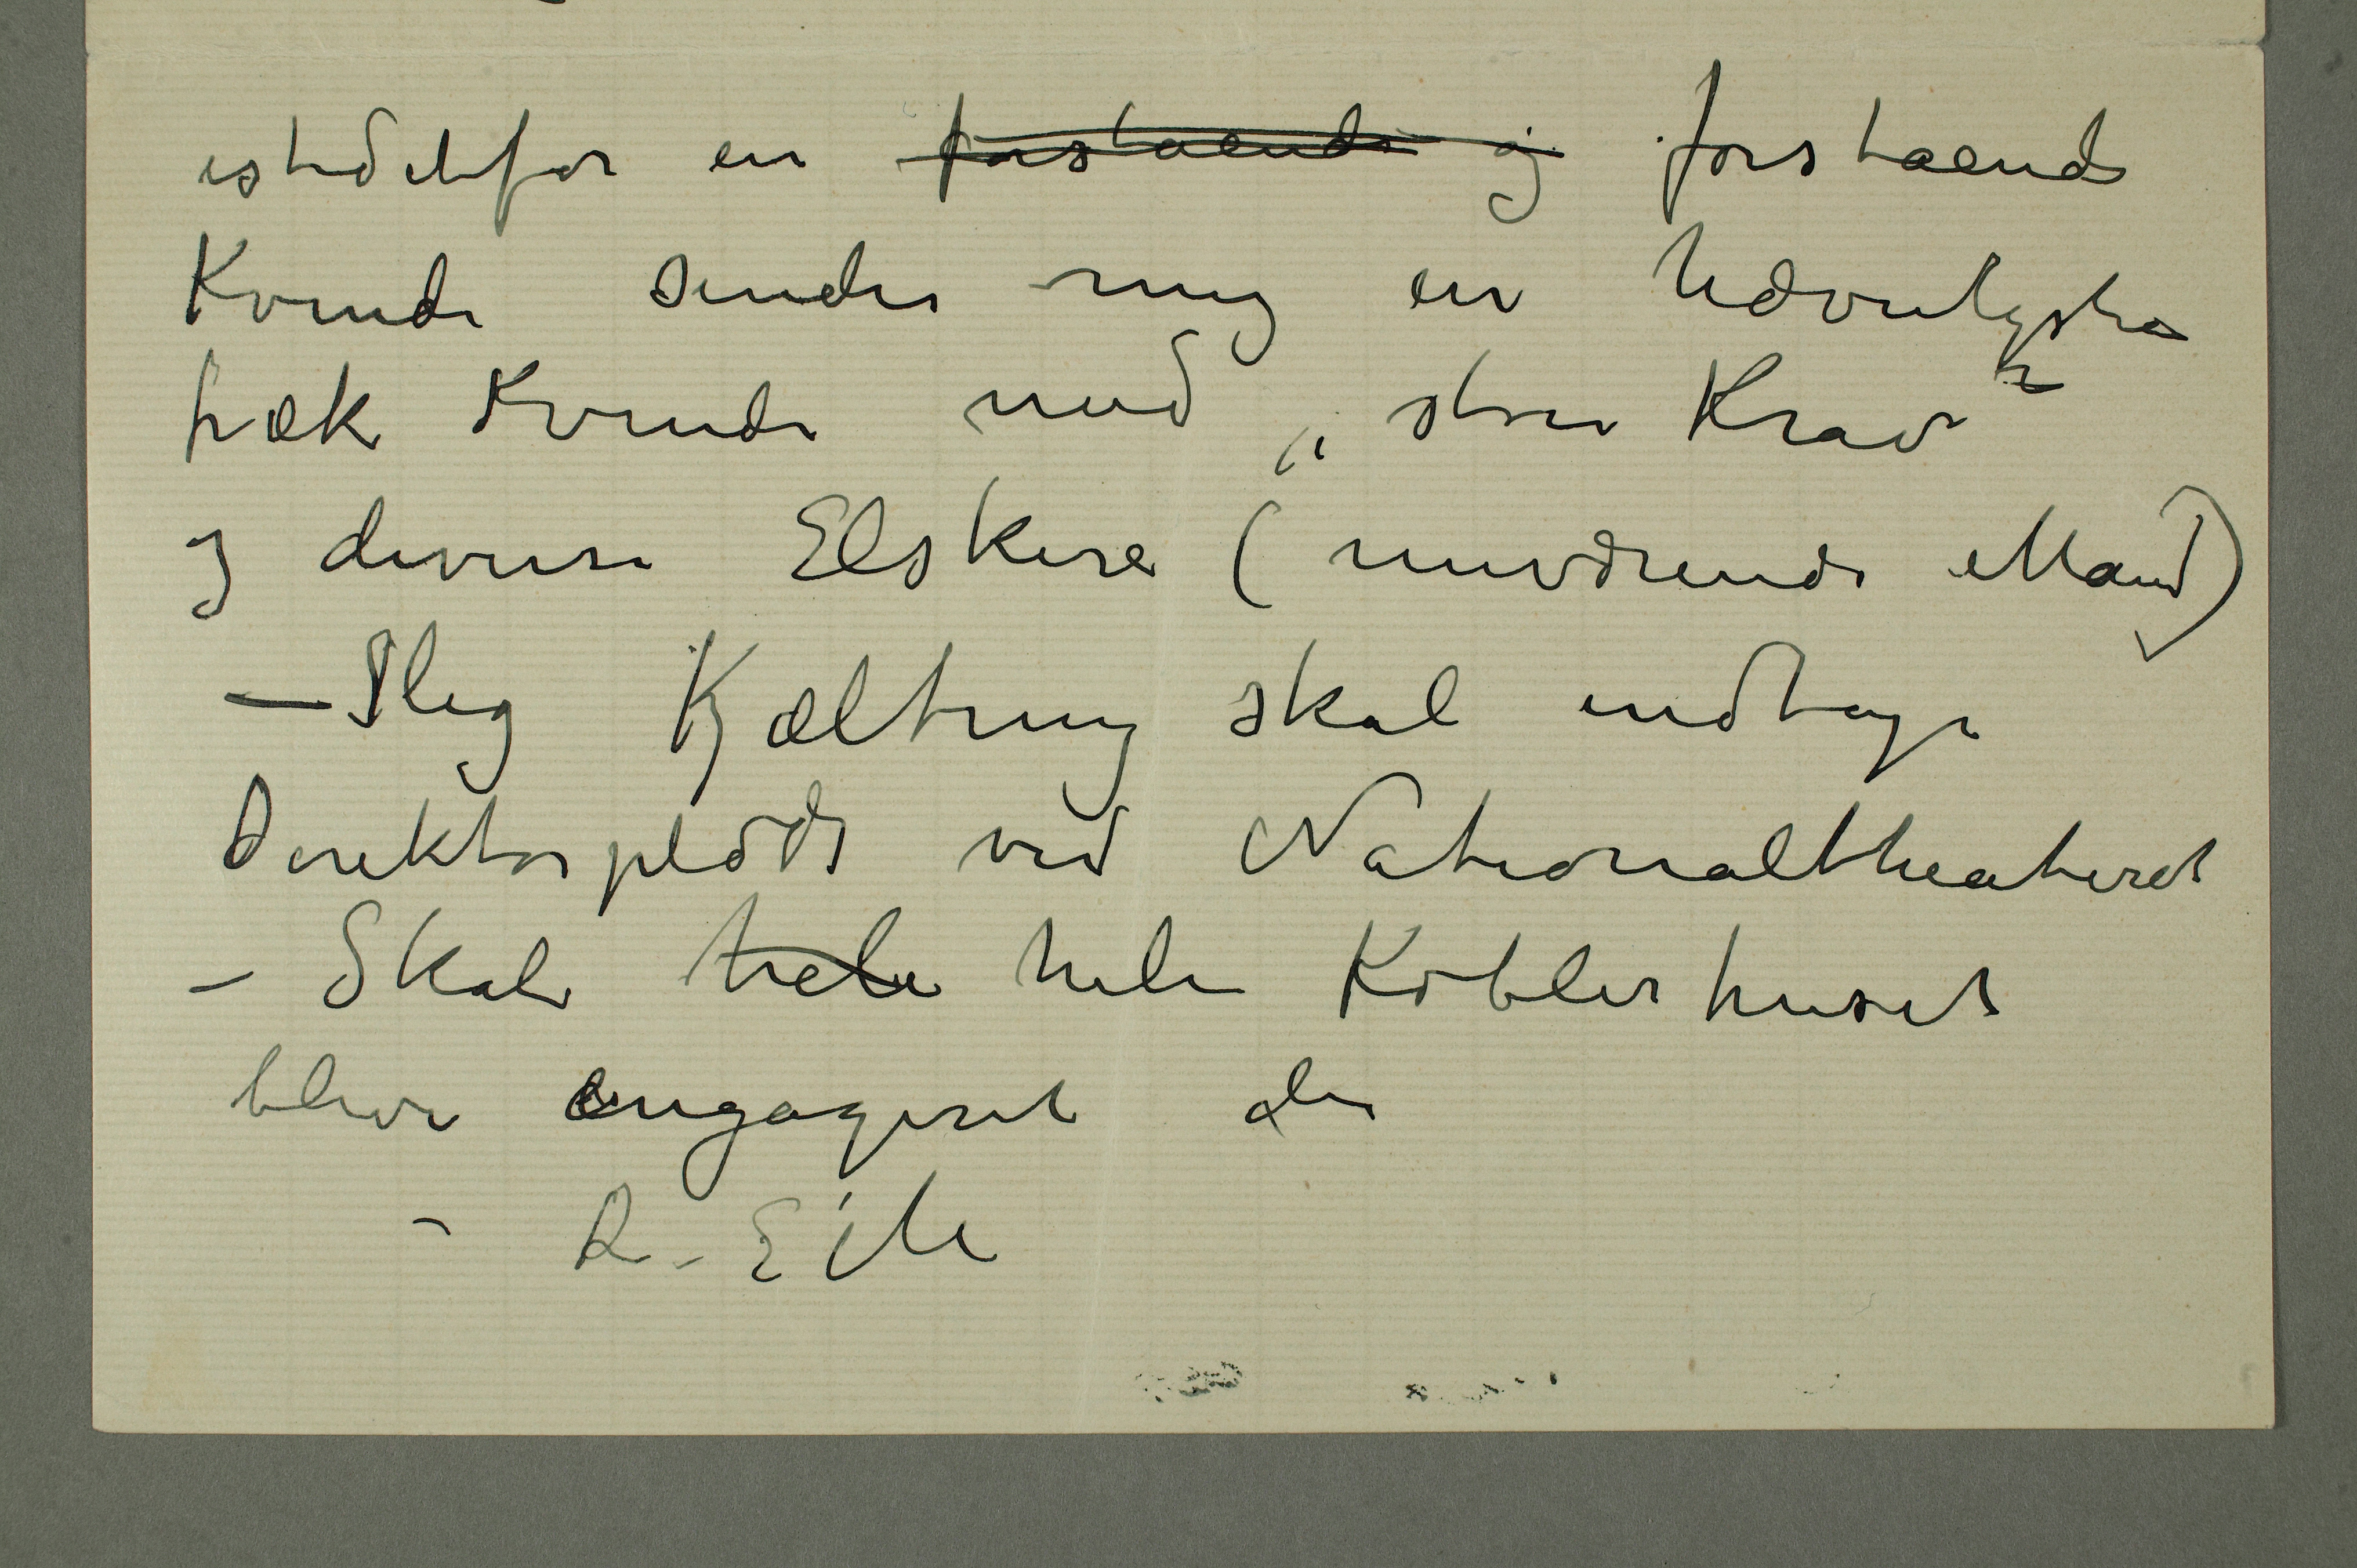 istedetfor en forstaaende og forstaaende
Kvinde sender mig en hævnlysten
fræk Kvinde med „store Krav“
og diverse Elskere (nuværende Mand)
— Slig Kjæltring skal indtage
Direktørplads ved Nationaltheateret
– Skal hele hele Koblerhuset
blive engageret der
– D. E M